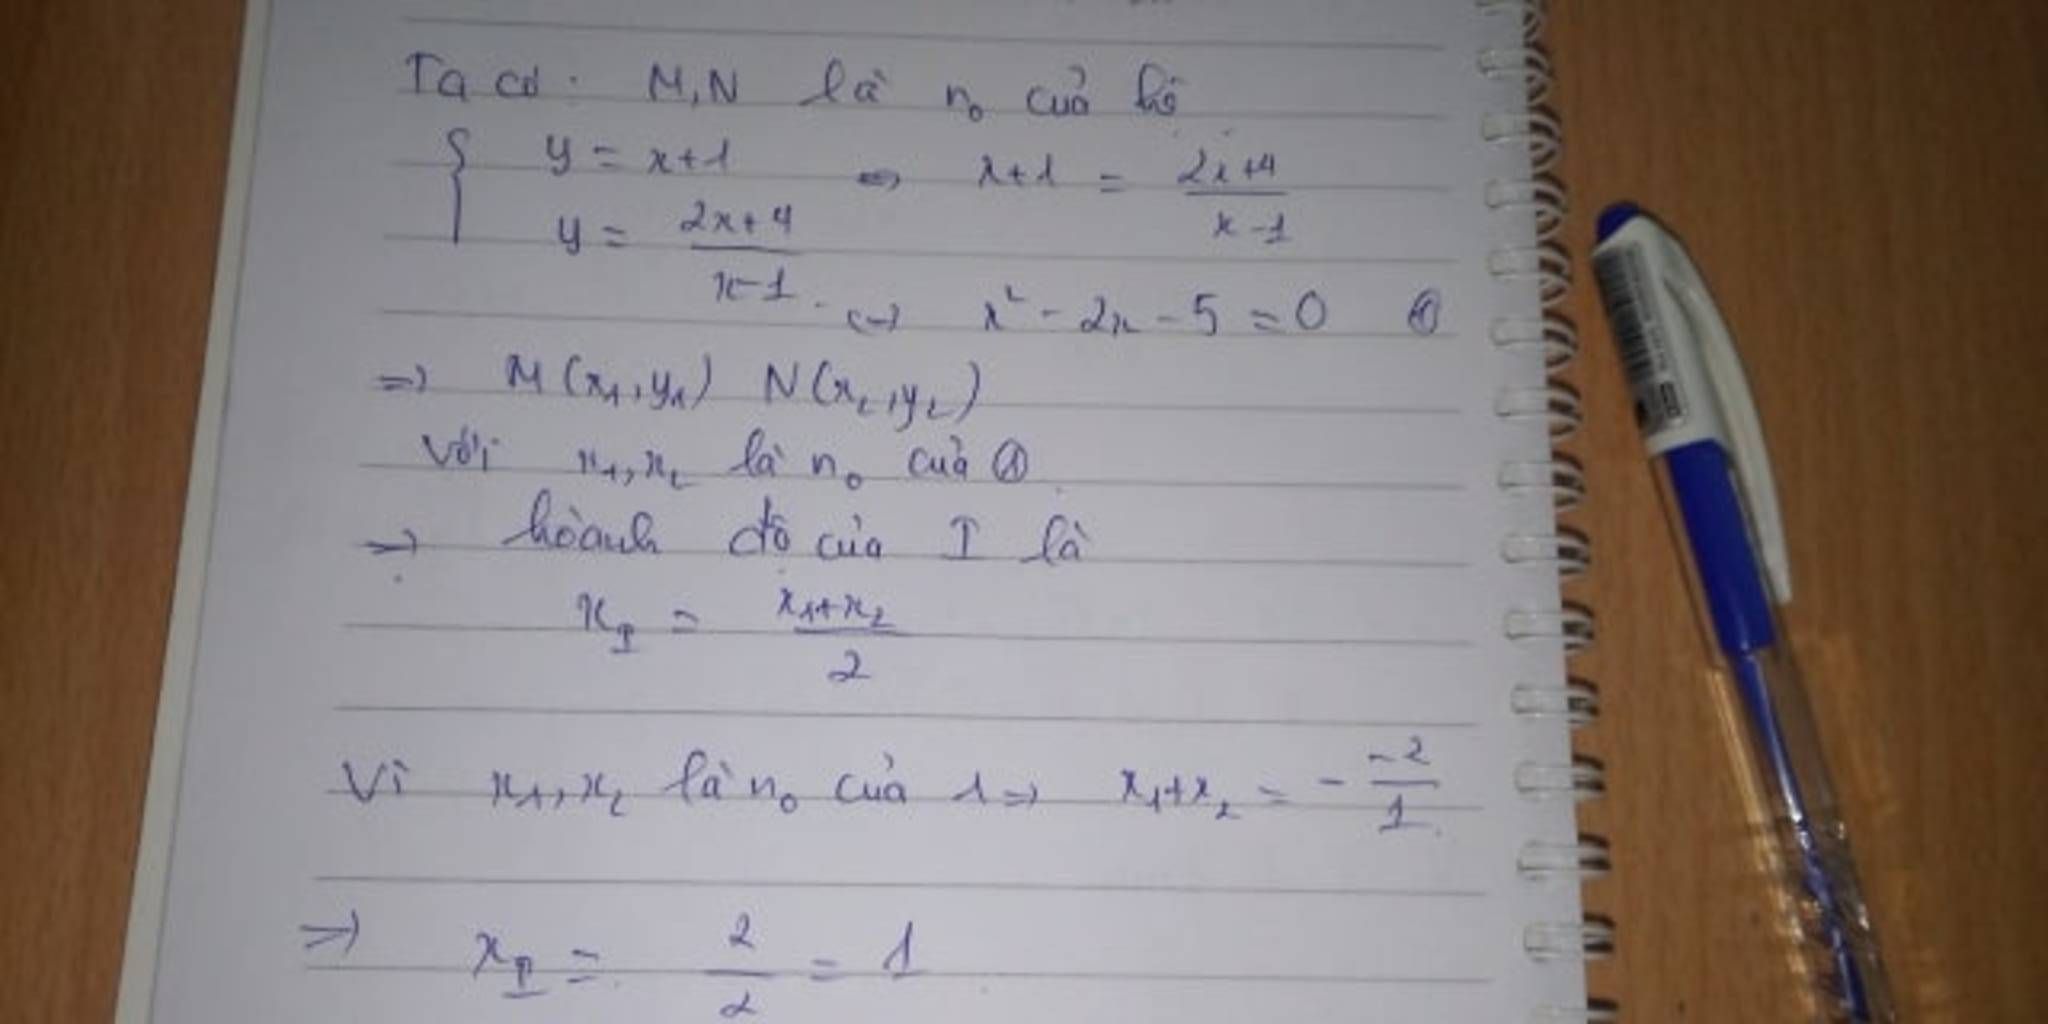 Ta có: M,N là n₀ của hệ
{ y = x+1 <=> x+1 = (2x+4)/(x-1)
y = (2x+4)/(x-1) <-> x² - 2x - 5 = 0 ①
=> M(x₁,y₁) N(x₂,y₂)
Với x₁,x₂ là n₀ của ①
=> hoành độ của I là
x_I = (x₁+x₂)/2
Vì x₁,x₂ là n₀ của 1 => x₁+x₂ = - (-2)/1
=> x_I = 2/2 = 1